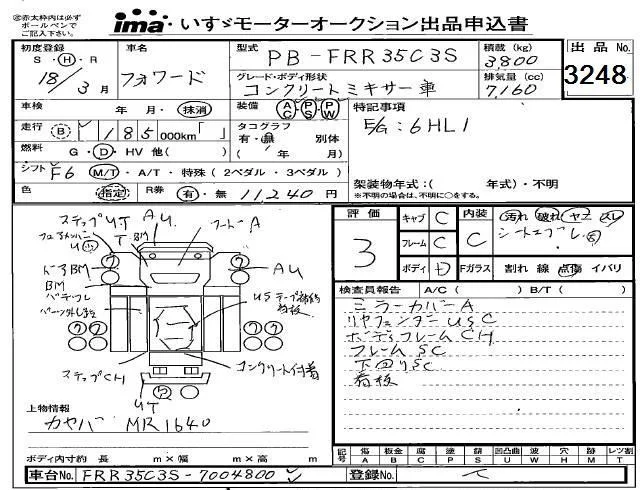 ※赤太枠内は必ず
ボールペンで
ご記入下さい。
ima いすゞモーターオークション出品申込書
初度登録 S・H・R 18/3月
車名 フォワード
型式 PB-FRR35C3S
積載(kg) 3,800
出品No. 3248
グレード・ボディ形状 コンクリートミキサー車
排気量(cc) 7,160
車検 年・月・抹消
装備 AC PS PW
特記事項
E/G:6HL1
走行 B 185,000km「」
タコグラフ 有・無 別体 (年 月)
燃料 G・D・HV 他( )
シフト F6 M/T・A/T・特殊(2ペダル・3ペダル)
架装物年式:( 年式)・不明
(※年式の場合は、不明に○をする。)
色 (指定)
R券 有・無 11,240円
ステップUT AU フードA
T BM
ドアBM AU
BM
バッテリ
US テープ補修
看板
ステップCH
コンクリート付着
UT
上物情報
カヤバ MR1640
ボディ内寸約 長 m×幅 m×高 m
評価 3
キャブ C
フレーム C
ボディ D
内装 C
汚れ 破れ ヤニ スレ
Fガラス 割れ 線 点傷 イバリ
検査員報告 A/C( ) B/T( )
ミラーカバーA
リヤフェンダーUSC
ボディフレームCH
フレームSC
下回りSC
看板
記号 傷A 板金B 腐C 塗P 錆S 凹凸曲U 波W 穴H 跡M レツ割T
車台No. FRR35C3S-7004800
登録No.